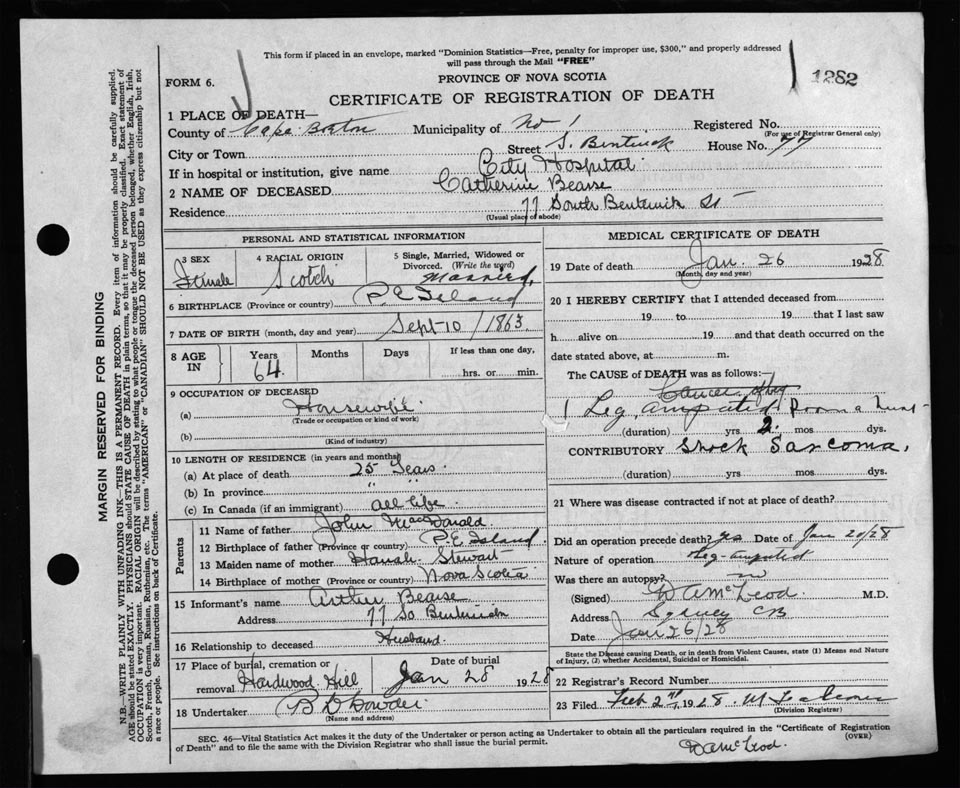 This form if placed in an envelope, marked "Dominion Statistics—Free, penalty for improper use, $300," and properly addressed
will pass through the Mail "FREE"
PROVINCE OF NOVA SCOTIA
1282
FORM 6.
CERTIFICATE OF REGISTRATION OF DEATH
1 PLACE OF DEATH—
County of Cape Breton Municipality of No 1 Registered No.
(For use of Registrar General only)
City or Town Street S. Bentinck House No. 77
If in hospital or institution, give name City Hospital
2 NAME OF DECEASED Catherine Bearse
Residence 77 South Bentinck St
(Usual place of abode)
PERSONAL AND STATISTICAL INFORMATION
3 SEX Female
4 RACIAL ORIGIN Scotch
5 Single, Married, Widowed or Divorced. (Write the word) Married
6 BIRTHPLACE (Province or country) P.E. Island
7 DATE OF BIRTH (month, day and year) Sept 10 / 1863
8 AGE IN Years 64 Months Days If less than one day, hrs. or min.
9 OCCUPATION OF DECEASED
(a) Housewife
(Trade or occupation or kind of work)
(b)
(Kind of industry)
10 LENGTH OF RESIDENCE (in years and months)
(a) At place of death 25 Years
(b) In province " "
(c) In Canada (if an immigrant) all life
Parents
11 Name of father John MacDonald
12 Birthplace of father (Province or country) P.E. Island
13 Maiden name of mother Hannah Stewart
14 Birthplace of mother (Province or country) Nova Scotia
15 Informant's name Arthur Bearse
Address 77 So Bentinck
16 Relationship to deceased Husband
17 Place of burial, cremation or removal Hardwood Hill Date of burial Jan 28 1928
18 Undertaker
(Name and address)
MEDICAL CERTIFICATE OF DEATH
19 Date of death Jan. 26 1928
(Month, day and year)
20 I HEREBY CERTIFY that I attended deceased from
19 to 19 that I last saw
h alive on 19 and that death occurred on the
date stated above, at m.
The CAUSE OF DEATH was as follows:—
Cancer of leg
Leg amputated
(duration) yrs 2 mos dys.
CONTRIBUTORY Shock Sarcoma,
(duration) yrs. mos. dys.
21 Where was disease contracted if not at place of death?
Did an operation precede death? yes Date of Jan 20/28
Nature of operation Leg amputated
Was there an autopsy? no
(Signed) D A McLeod M.D.
Address Sydney CB
Date Jan 26/28
State the Disease causing Death, or in death from Violent Causes, state (1) Means and Nature
of Injury, (2) whether Accidental, Suicidal or Homicidal.
22 Registrar's Record Number
23 Filed Feb 2nd 1928
(Division Registrar)
SEC. 46—Vital Statistics Act makes it the duty of the Undertaker or person acting as Undertaker to obtain all the particulars required in the "Certificate of Registration
of Death" and to file the same with the Division Registrar who shall issue the burial permit.
(OVER)
D A McLeod.
MARGIN RESERVED FOR BINDING
N.B.—WRITE PLAINLY WITH UNFADING INK—THIS IS A PERMANENT RECORD. Every item of information should be carefully supplied.
AGE should be stated EXACTLY. PHYSICIANS should STATE CAUSE OF DEATH in plain terms, so that it may be properly classified. Exact statement of
OCCUPATION is very important. RACIAL ORIGIN will be described by stating to what people or tongue the deceased person belonged, whether English, Irish,
Scotch, French, German, Russian, Ruthenian, etc. The terms "AMERICAN" or "CANADIAN" SHOULD NOT BE USED as they express citizenship but not
a race or people. See instructions on back of Certificate.